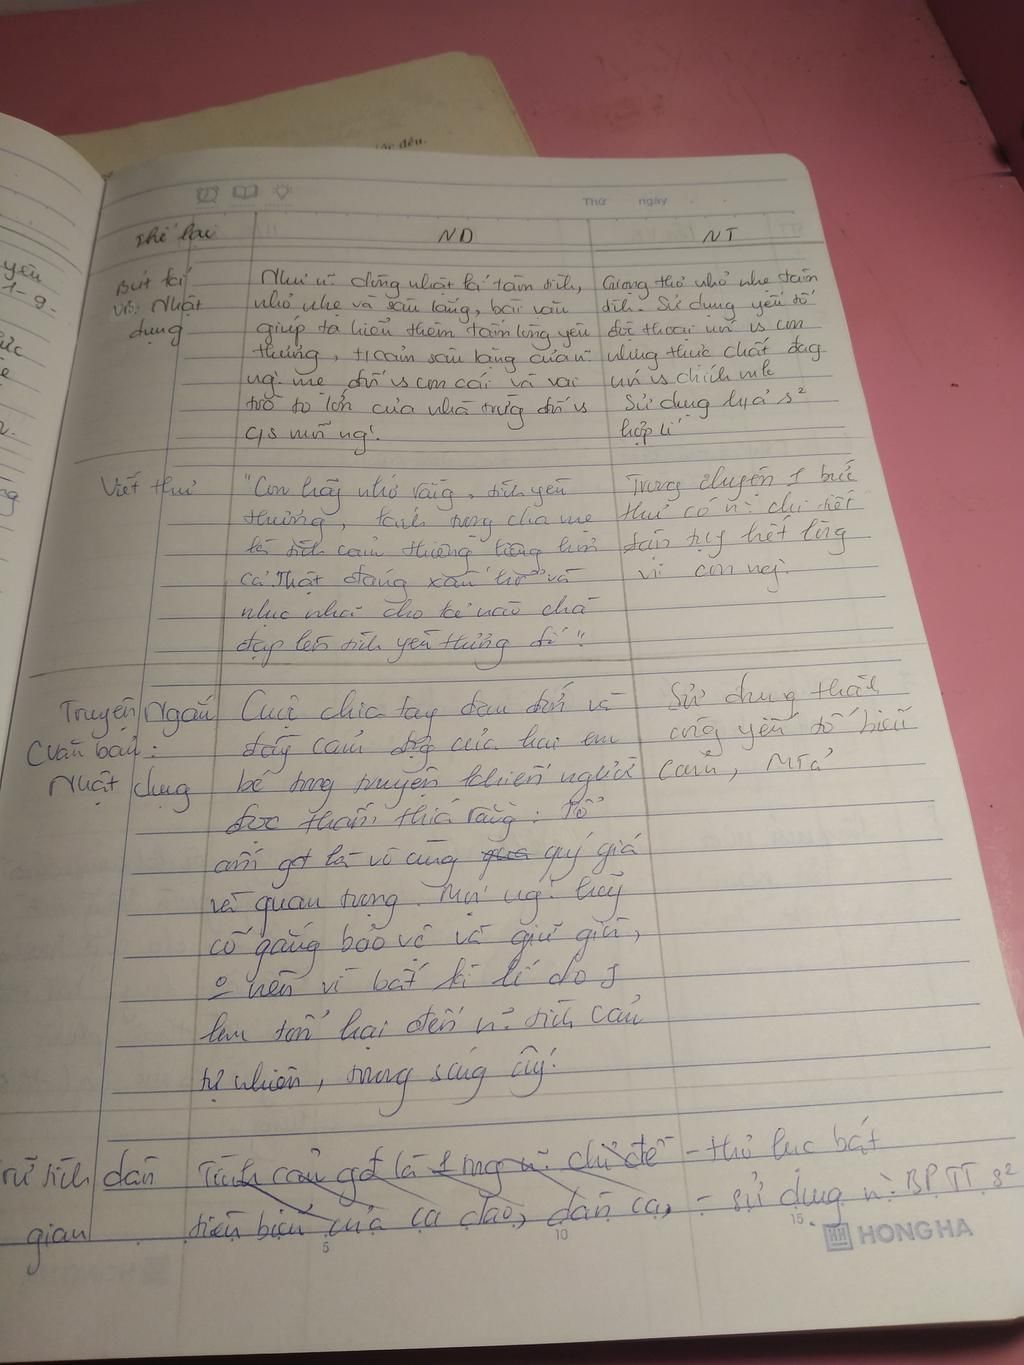 Thứ ngày
Thể loại
ND
NT
Bút kí
VB: Nhật
dụng
Như n~ dòng nhật kí tâm tình,
nhỏ nhẹ và sâu lắng, bài văn
giúp ta hiểu thêm tấm lòng yêu
thương, t/cảm sâu lặng của n~
ng`. mẹ đối vs con cái và vai
trò to lớn của nhà trường đối vs
c/s mỗi ng`.
Giọng thơ nhỏ nhẹ tâm
tình. Sử dụng yếu tố
đối thoại như vs con
nhưng thực chất đag
như vs chính mk
Sử dụng h/ả s²
hợp lí
Viết thư
"Con hãy nhớ rằng, tình yêu
thương, kính trọng cha mẹ
là tình cảm thiêng liêng hơn
cả. Thật đáng xấu hổ và
nhục nhã cho kẻ nào chà
đạp lên tình yêu thương đó".
Trong chuyện 1 bức
thư có n~ chi tiết
tận tụy hết lòng
vì con
Truyện Ngắn
(văn bản:
Nhật dụng
Cuộc chia tay đau đớn và
đầy cảm động của hai em
bé trong truyện khiến người
đọc thấm thía rằng: tổ
ấm gđ là vô cùng quý giá
và quan trọng. Mọi ng`. hãy
cố gắng bảo vệ và giữ gìn,
o nên vì bất kì lí do j
làm tổn hại đến n~ tình cảm
tự nhiên, trong sáng ấy.
Sử dụng thành
công yếu tố biểu
cảm, MTả
Trữ tình dân
gian
Tình cảm gđ là 1 trong n~ chủ đề
tiêu biểu của ca dao, dân ca,
- thơ lục bát
- sử dụng n~ BPTT s²
5 10 15
HONG HA